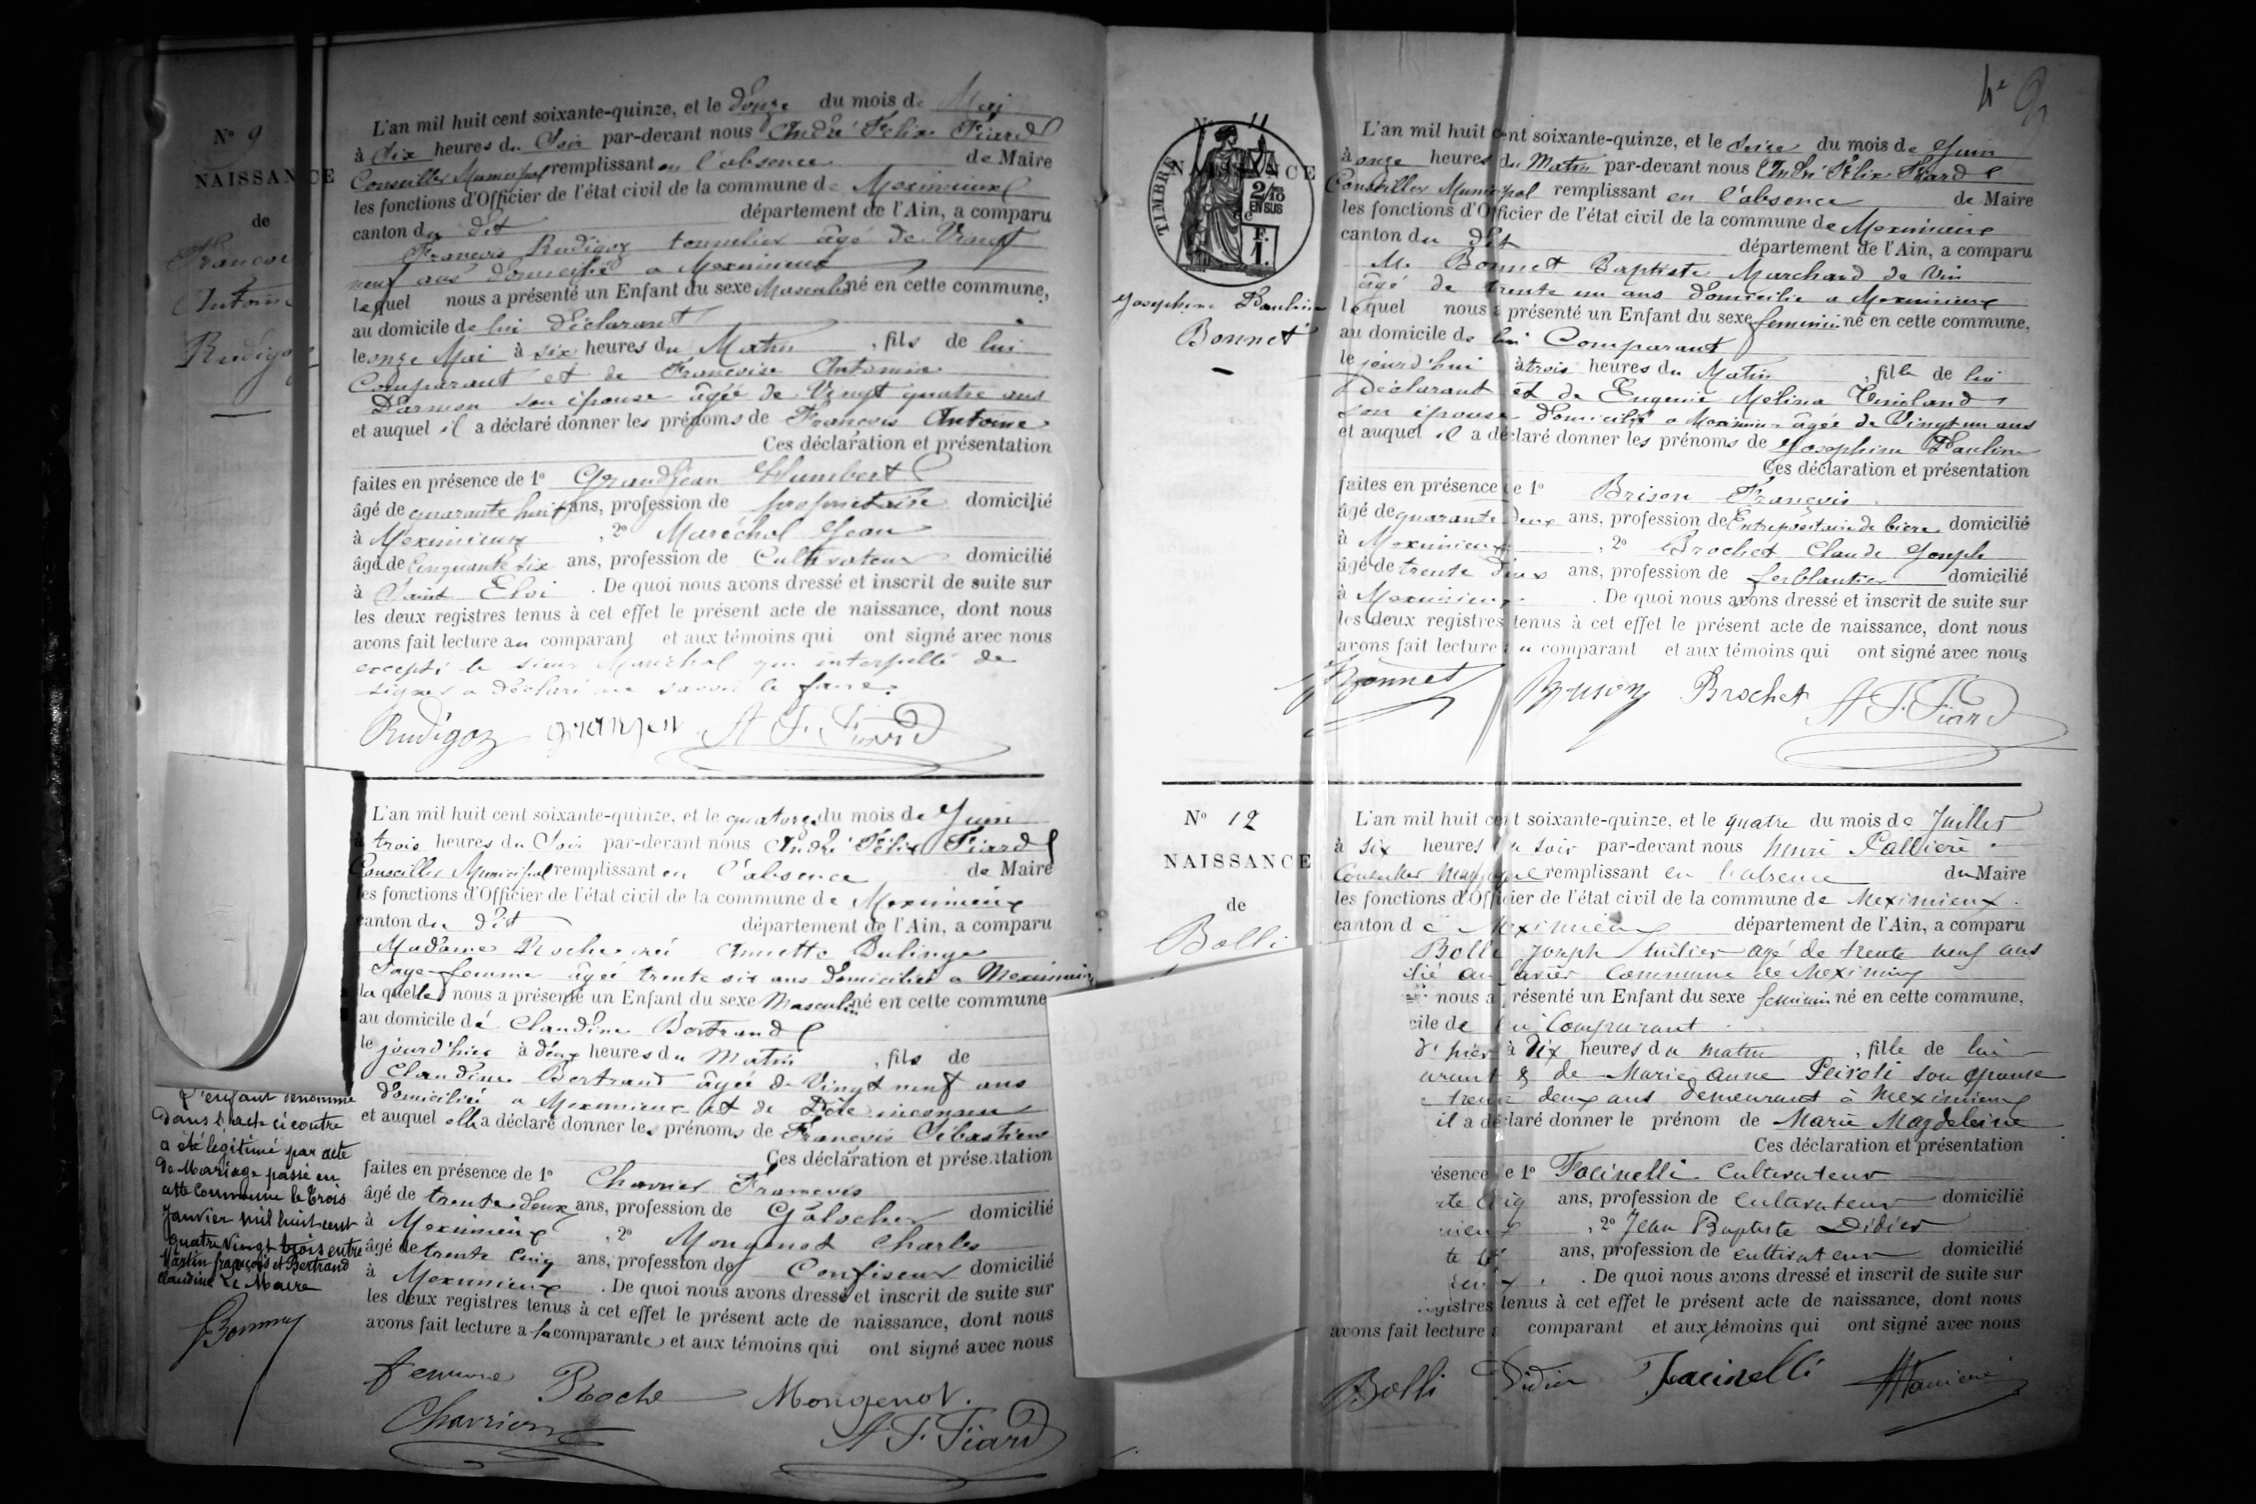 N° 9
NAISSANCE
de
François
Antoine
Rudigoz
L'an mil huit cent soixante-quinze, et le douze du mois de Mai
à Six heures du Soir par-devant nous André Félix Fiard
Conseiller Municipal remplissant en l'absence de Maire
les fonctions d'Officier de l'état civil de la commune de Meximieux
canton du dit département de l'Ain, a comparu
François Rudigoz tonnelier âgé de Vingt
neuf ans domicilié a Meximieux
lequel nous a présenté un Enfant du sexe Masculin né en cette commune,
au domicile de lui Déclarant
le onze Mai à six heures du Matin, fils de lui
Comparant et de Françoise Antonine
Darmon son épouse âgée de Vingt quatre ans
et auquel il a déclaré donner les prénoms de François Antoine
Ces déclaration et présentation
faites en présence de 1° Grandjean Humbert
âgé de quarante huit ans, profession de propriétaire domicilié
à Meximieux, 2° Maréchal Jean
âgé de Cinquante six ans, profession de Cultivateur domicilié
à Saint Eloi. De quoi nous avons dressé et inscrit de suite sur
les deux registres tenus à cet effet le présent acte de naissance, dont nous
avons fait lecture au comparant et aux témoins qui ont signé avec nous
excepté le sieur Maréchal qui interpellé de
signer a déclaré ne savoir le faire.
Rudigoz A F. Fiard
L'an mil huit cent soixante-quinze, et le quatorze du mois de Juin
à trois heures du Soir par-devant nous André Félix Fiard
Conseiller Municipal remplissant en l'absence de Maire
les fonctions d'Officier de l'état civil de la commune de Meximieux
canton du dit département de l'Ain, a comparu
Madame Roche née Annette Bulinge
Sage-femme âgée trente six ans domiciliée a Meximieux
la quelle nous a présenté un Enfant du sexe Masculin né en cette commune
au domicile de Claudine Bertrand
le jourd'hier à deux heures du Matin, fils de
Claudine Bertrand âgée de Vingt neuf ans
domiciliée a Meximieux et de Père inconnu
et auquel elle a déclaré donner les prénoms de François Sébastien
Ces déclaration et présentation
faites en présence de 1° Charrier François
âgé de trente deux ans, profession de Galocher domicilié
à Meximieux, 2° Mongenot Charles
âgé de trente cinq ans, profession de Confiseur domicilié
à Meximieux. De quoi nous avons dressé et inscrit de suite sur
les deux registres tenus à cet effet le présent acte de naissance, dont nous
avons fait lecture a la comparante et aux témoins qui ont signé avec nous
femme Roche Mongenot.
Charrier A F. Fiard
L'enfant dénommé
dans l'acte ci contre
a été légitimé par acte
de Mariage passé en
cette Commune le trois
Janvier mil huit cent
quatre vingt trois entre
Martin françois et Bertrand
claudine Le Maire
N° 11
NAISSANCE
de
TIMBRE
2/10
EN SUS
F.
1.
Josephine Pauline
Bonnet
L'an mil huit cent soixante-quinze, et le Seize du mois de Juin
à onze heures du Matin par-devant nous André Félix Fiard
Conseiller Municipal remplissant en l'absence de Maire
les fonctions d'Officier de l'état civil de la commune de Meximieux
canton du dit département de l'Ain, a comparu
M. Bonnet Baptiste Marchand de Vin
âgé de trente un ans domicilié a Meximieux
lequel nous a présenté un Enfant du sexe feminin né en cette commune,
au domicile de lui Comparant
le jourd'hui à trois heures du Matin, fille de lui
déclarant et de Eugenie Melina
son épouse domiciliée a Meximieux âgée de Vingt un ans
et auquel il a déclaré donner les prénoms de Josephine Pauline
Ces déclaration et présentation
faites en présence de 1° Brison François
âgé de quarante deux ans, profession de Entrepositaire de biere domicilié
à Meximieux, 2° Brochet Claude Joseph
âgé de trente deux ans, profession de ferblantier domicilié
à Meximieux. De quoi nous avons dressé et inscrit de suite sur
les deux registres tenus à cet effet le présent acte de naissance, dont nous
avons fait lecture au comparant et aux témoins qui ont signé avec nous
Bonnet Brison Brochet A F. Fiard
N° 12
NAISSANCE
de
Bolli
L'an mil huit cent soixante-quinze, et le quatre du mois de Juillet
à six heures du soir par-devant nous henri
Conseiller Municipal remplissant en l'absence du Maire
les fonctions d'Officier de l'état civil de la commune de Meximieux.
canton de Meximieux département de l'Ain, a comparu
Bolli Joseph huilier agé de trente neuf ans
commune de Meximieux
nous a présenté un Enfant du sexe feminin né en cette commune,
cile de lui Comparant
d'hier à dix heures du matin, fille de lui
arant & de Marie Anne Peiroti son épouse
trente deux ans demeurant à Meximieux
il a déclaré donner le prénom de Marie Magdeleine
Ces déclaration et présentation
résence de 1° Facinelli Cultivateur
ans, profession de cultivateur domicilié
mieux, 2° Jean Baptiste Didier
ans, profession de cultivateur domicilié
. De quoi nous avons dressé et inscrit de suite sur
registres tenus à cet effet le présent acte de naissance, dont nous
avons fait lecture comparant et aux témoins qui ont signé avec nous
Bolli Didier Facinelli